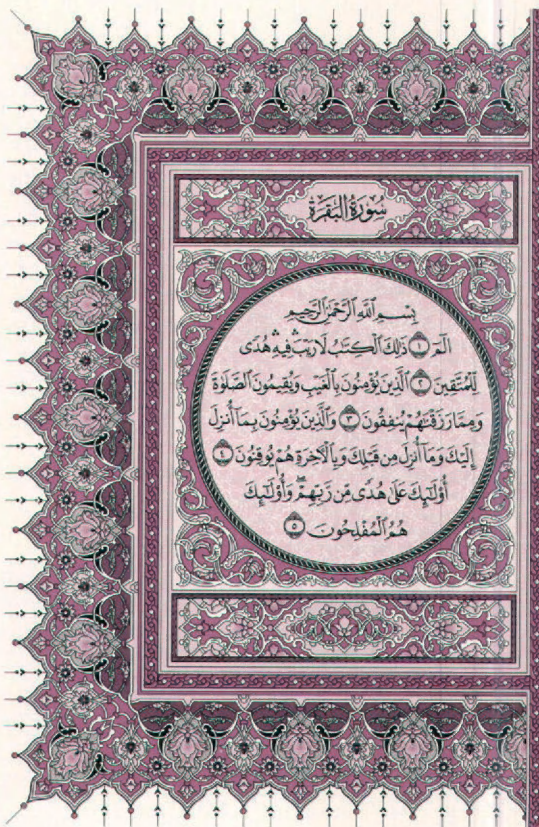 سُورَةُ الْبَقَرَةِ
بِسْمِ اللَّهِ الرَّحْمَٰنِ الرَّحِيمِ
الٓمٓ ١ ذَٰلِكَ الْكِتَٰبُ لَا رَيْبَ ۛ فِيهِ ۛ هُدًى
لِّلْمُتَّقِينَ ٢ الَّذِينَ يُؤْمِنُونَ بِالْغَيْبِ وَيُقِيمُونَ الصَّلَوٰةَ
وَمِمَّا رَزَقْنَٰهُمْ يُنفِقُونَ ٣ وَالَّذِينَ يُؤْمِنُونَ بِمَآ أُنزِلَ
إِلَيْكَ وَمَآ أُنزِلَ مِن قَبْلِكَ وَبِالْءَاخِرَةِ هُمْ يُوقِنُونَ ٤
أُو۟لَٰٓئِكَ عَلَىٰ هُدًى مِّن رَّبِّهِمْ ۖ وَأُو۟لَٰٓئِكَ
هُمُ الْمُفْلِحُونَ ٥